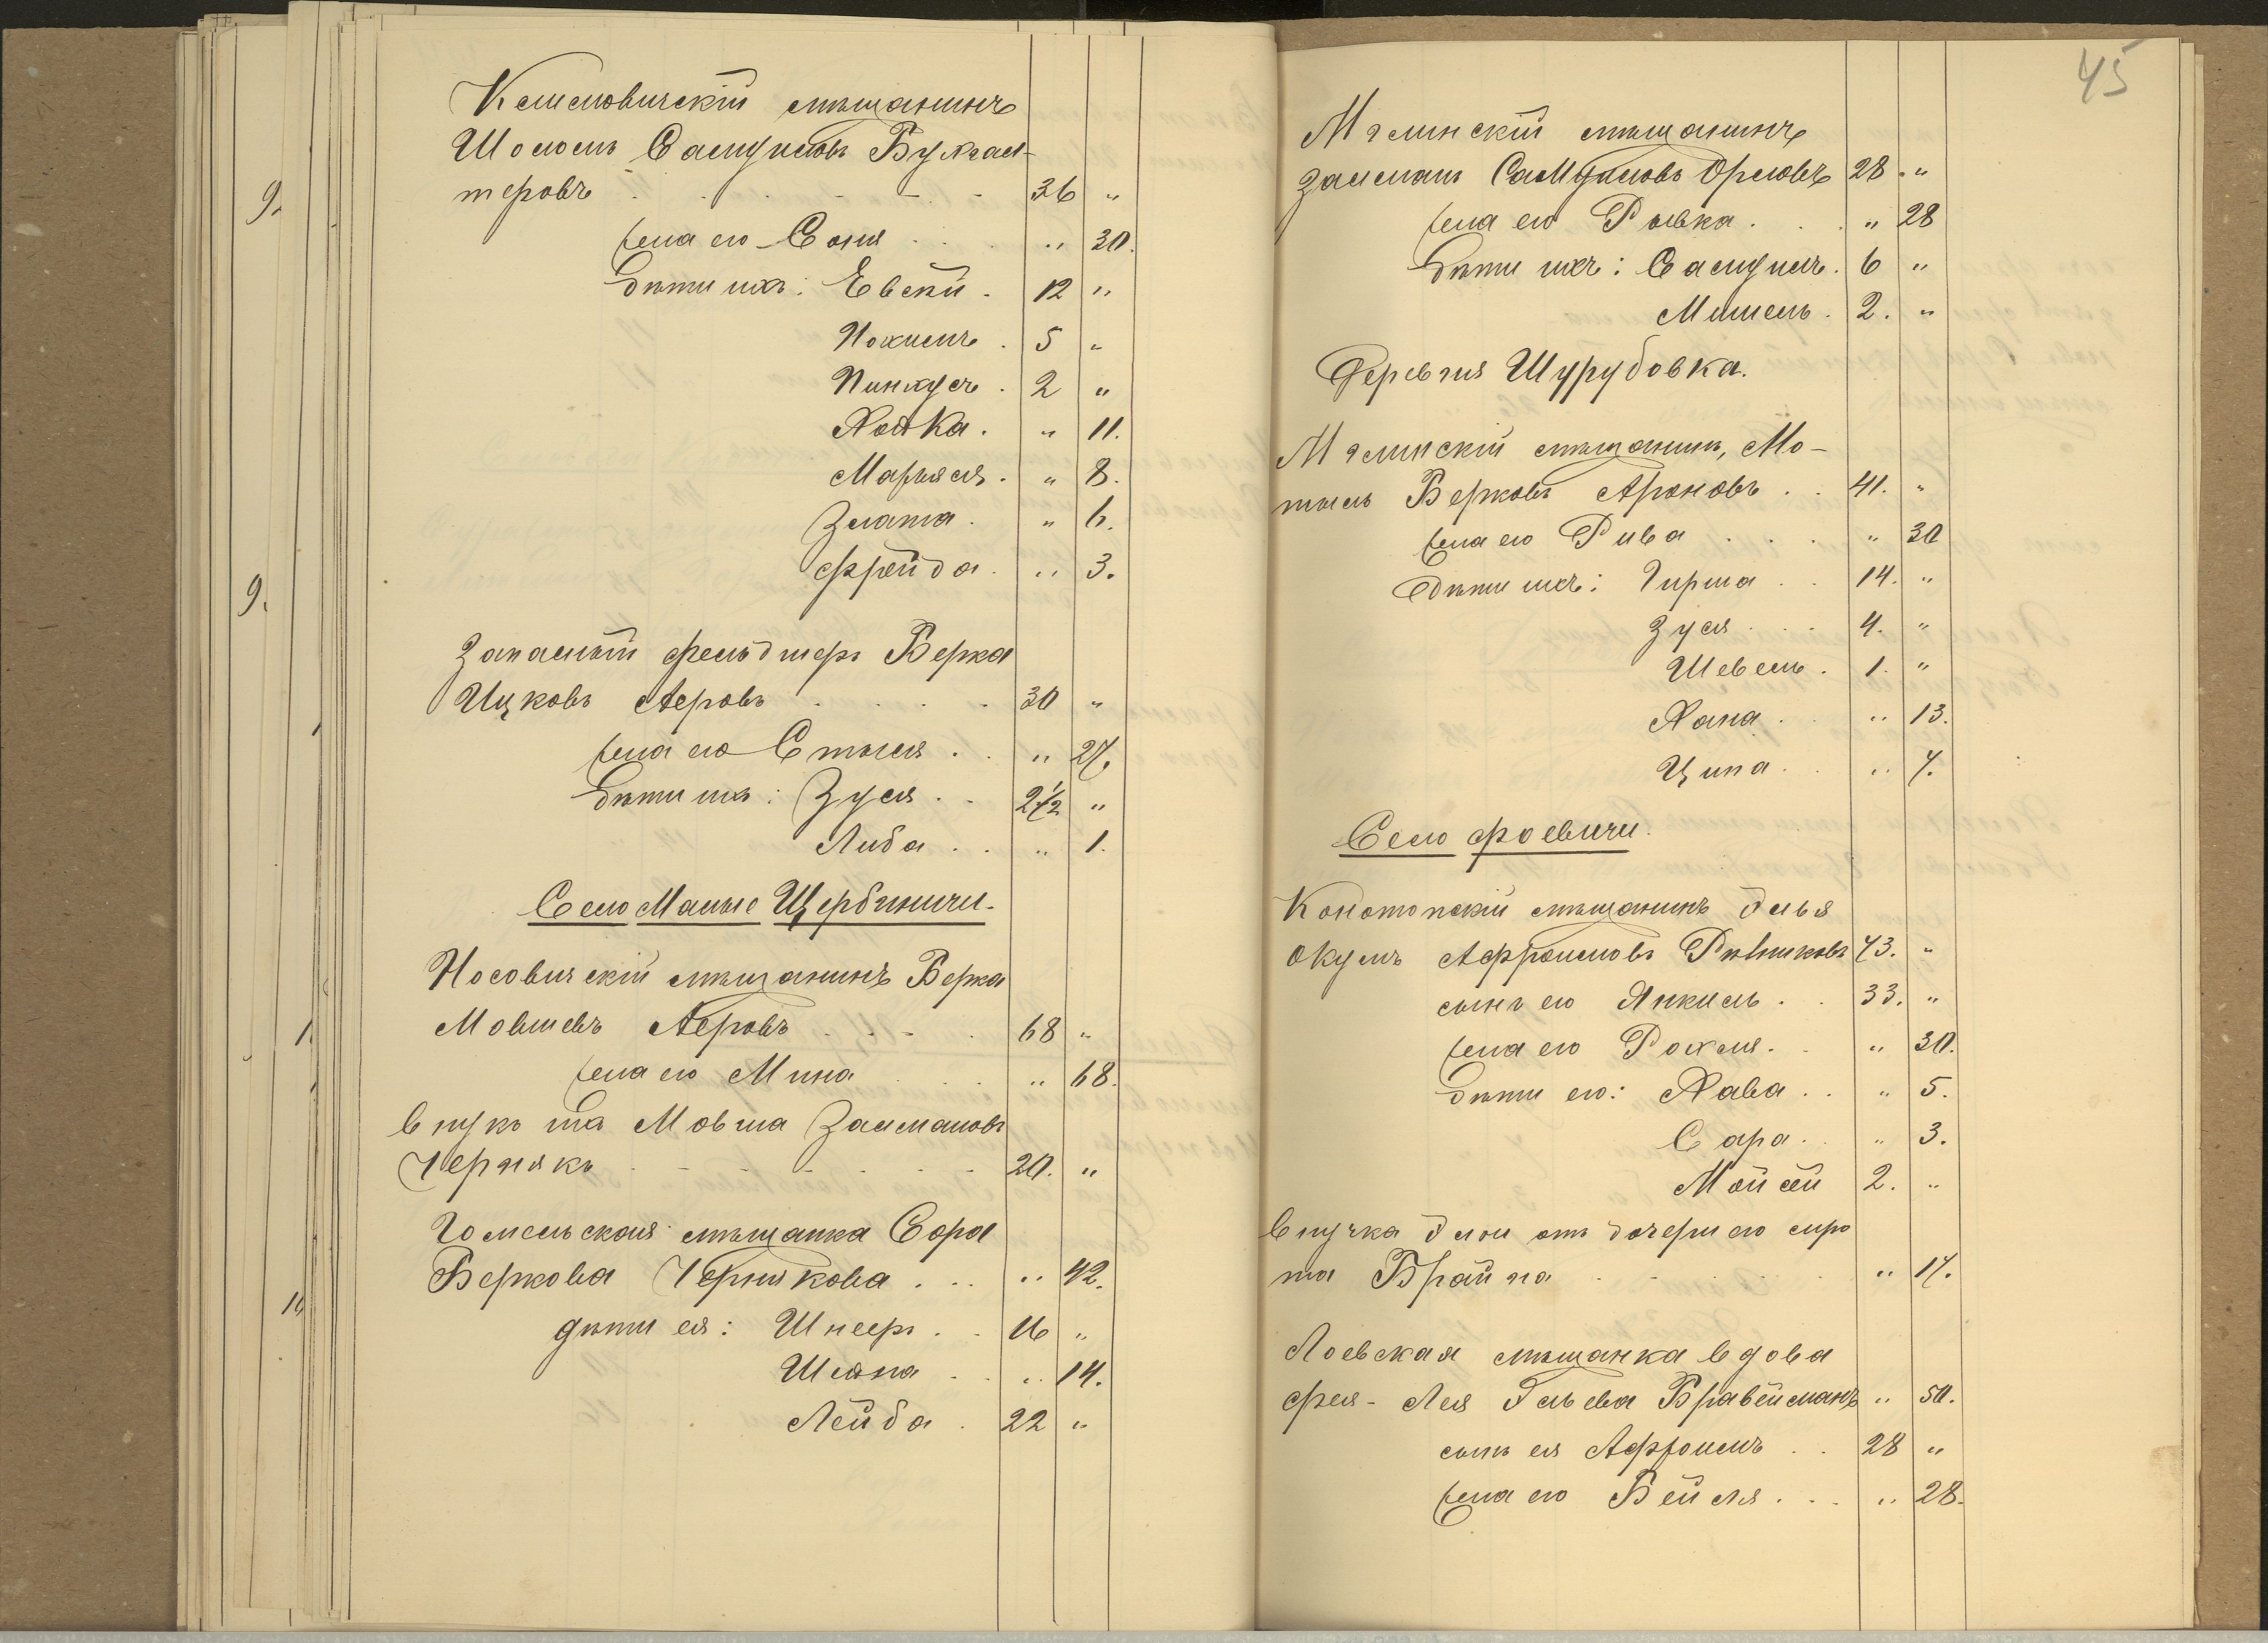 мѣщанинъ
Шоломъ Самуиловъ Бухгал-
теровъ . . . . . 36 "
жена его Соня . . . " 30.
дѣти ихъ: Евсей . 12 "
Нохимъ . 5 "
Пинкусъ . 2 "
Хайка . " 11.
Марьяся . " 8.
Злата . " 6.
Фрейда . " 3.
Запасный фельдшеръ Берка
Ицковъ Аеровъ . . . . 30 "
жена его Стыся . . " 27.
дѣти ихъ: Зуся . . 2½ "
Либа . . " 1.
Село Малые Щербиничи.
Носовичскій мѣщанинъ Берка
Мовшевъ Аеровъ . . . . 68 "
жена его Мина . . . " 68.
внукъ ихъ Мовша Залмановъ
Чернякъ . . . . . . 20. "
Гомельская мѣщанка Сора
Беркова Чернякова . . . " 42.
дѣти ея: Шнееръ . . 16 "
Шана . . " 14.
Лейба . 22 "
45
Мглинскій мѣщанинъ
Залманъ Самуиловъ Орловъ 28. "
жена его Рывка . . . " 28
дѣти ихъ: Самуилъ . 6 "
2. "
Деревня Шурубовка.
Мглинскій мѣщанинъ, Мо-
тысь Берковъ Ароновъ . . 41. "
жена его Рива . . . " 30
дѣти ихъ: Гирша . . 14. "
Зуся . . . 4. "
Шевель . 1. "
Хана . . " 13.
Ципа . . " 7.
Село Фоевичи.
Конотопскій мѣщанинъ Илья
Окумъ Афроимовъ 73. "
сынъ его Янкель . . 33. "
жена его Рохля . . " 30.
дѣти его: Хава . . " 5.
Сара . . " 3.
Мойсей 2. "
внучка Ильи отъ дочери его сиро
та Брайна . . . . . " 17.
Лоевская мѣщанка вдова
Фея-Лея Ильева Бравейманъ " 50.
сынъ ея Афроимъ . . 28 "
жена его Бейля . . . " 28.